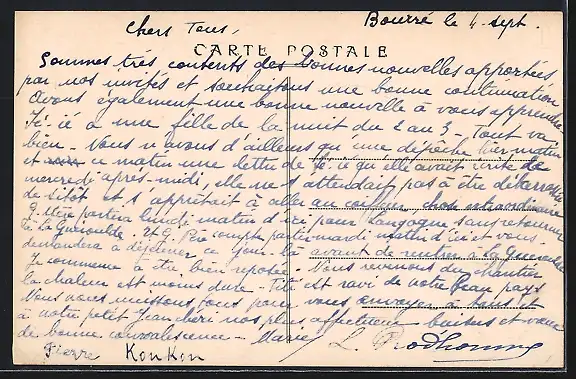 Bourré le 4 sept.
Chers Tous,
CARTE POSTALE
Sommes très contents des bonnes nouvelles apportées
par nos invités et souhaitons une bonne continuation
Avons également une bonne nouvelle à vous apprendre
a une fille de la nuit du 2 au 3 - Tout va
bien - Nous n'avons d'ailleurs qu'une dépêche hier matin
et ce matin une lettre de qu'elle avait écrite le
mercredi après-midi, elle ne s'attendait pas à être débarrassée
de sitôt et s'apprêtait à aller au chose extraordinaire
G. Mère partira lundi matin d'ici pour Langogne sans retourner
à La G. Père compte partir mardi matin d'ici et vous
demandera à déjeuner ce jour là avant de rentrer à la
Je commence à être bien reposée. Nous revenons du chantier
la chaleur est moins dure - est ravi de votre beau pays
Nous nous unissons tous pour vous envoyer à tous et
à votre petit Jean chéri nos plus affectueux baisers et vœux
de bonne convalescence - Marie L. Prodhomme
Pierre KonKon